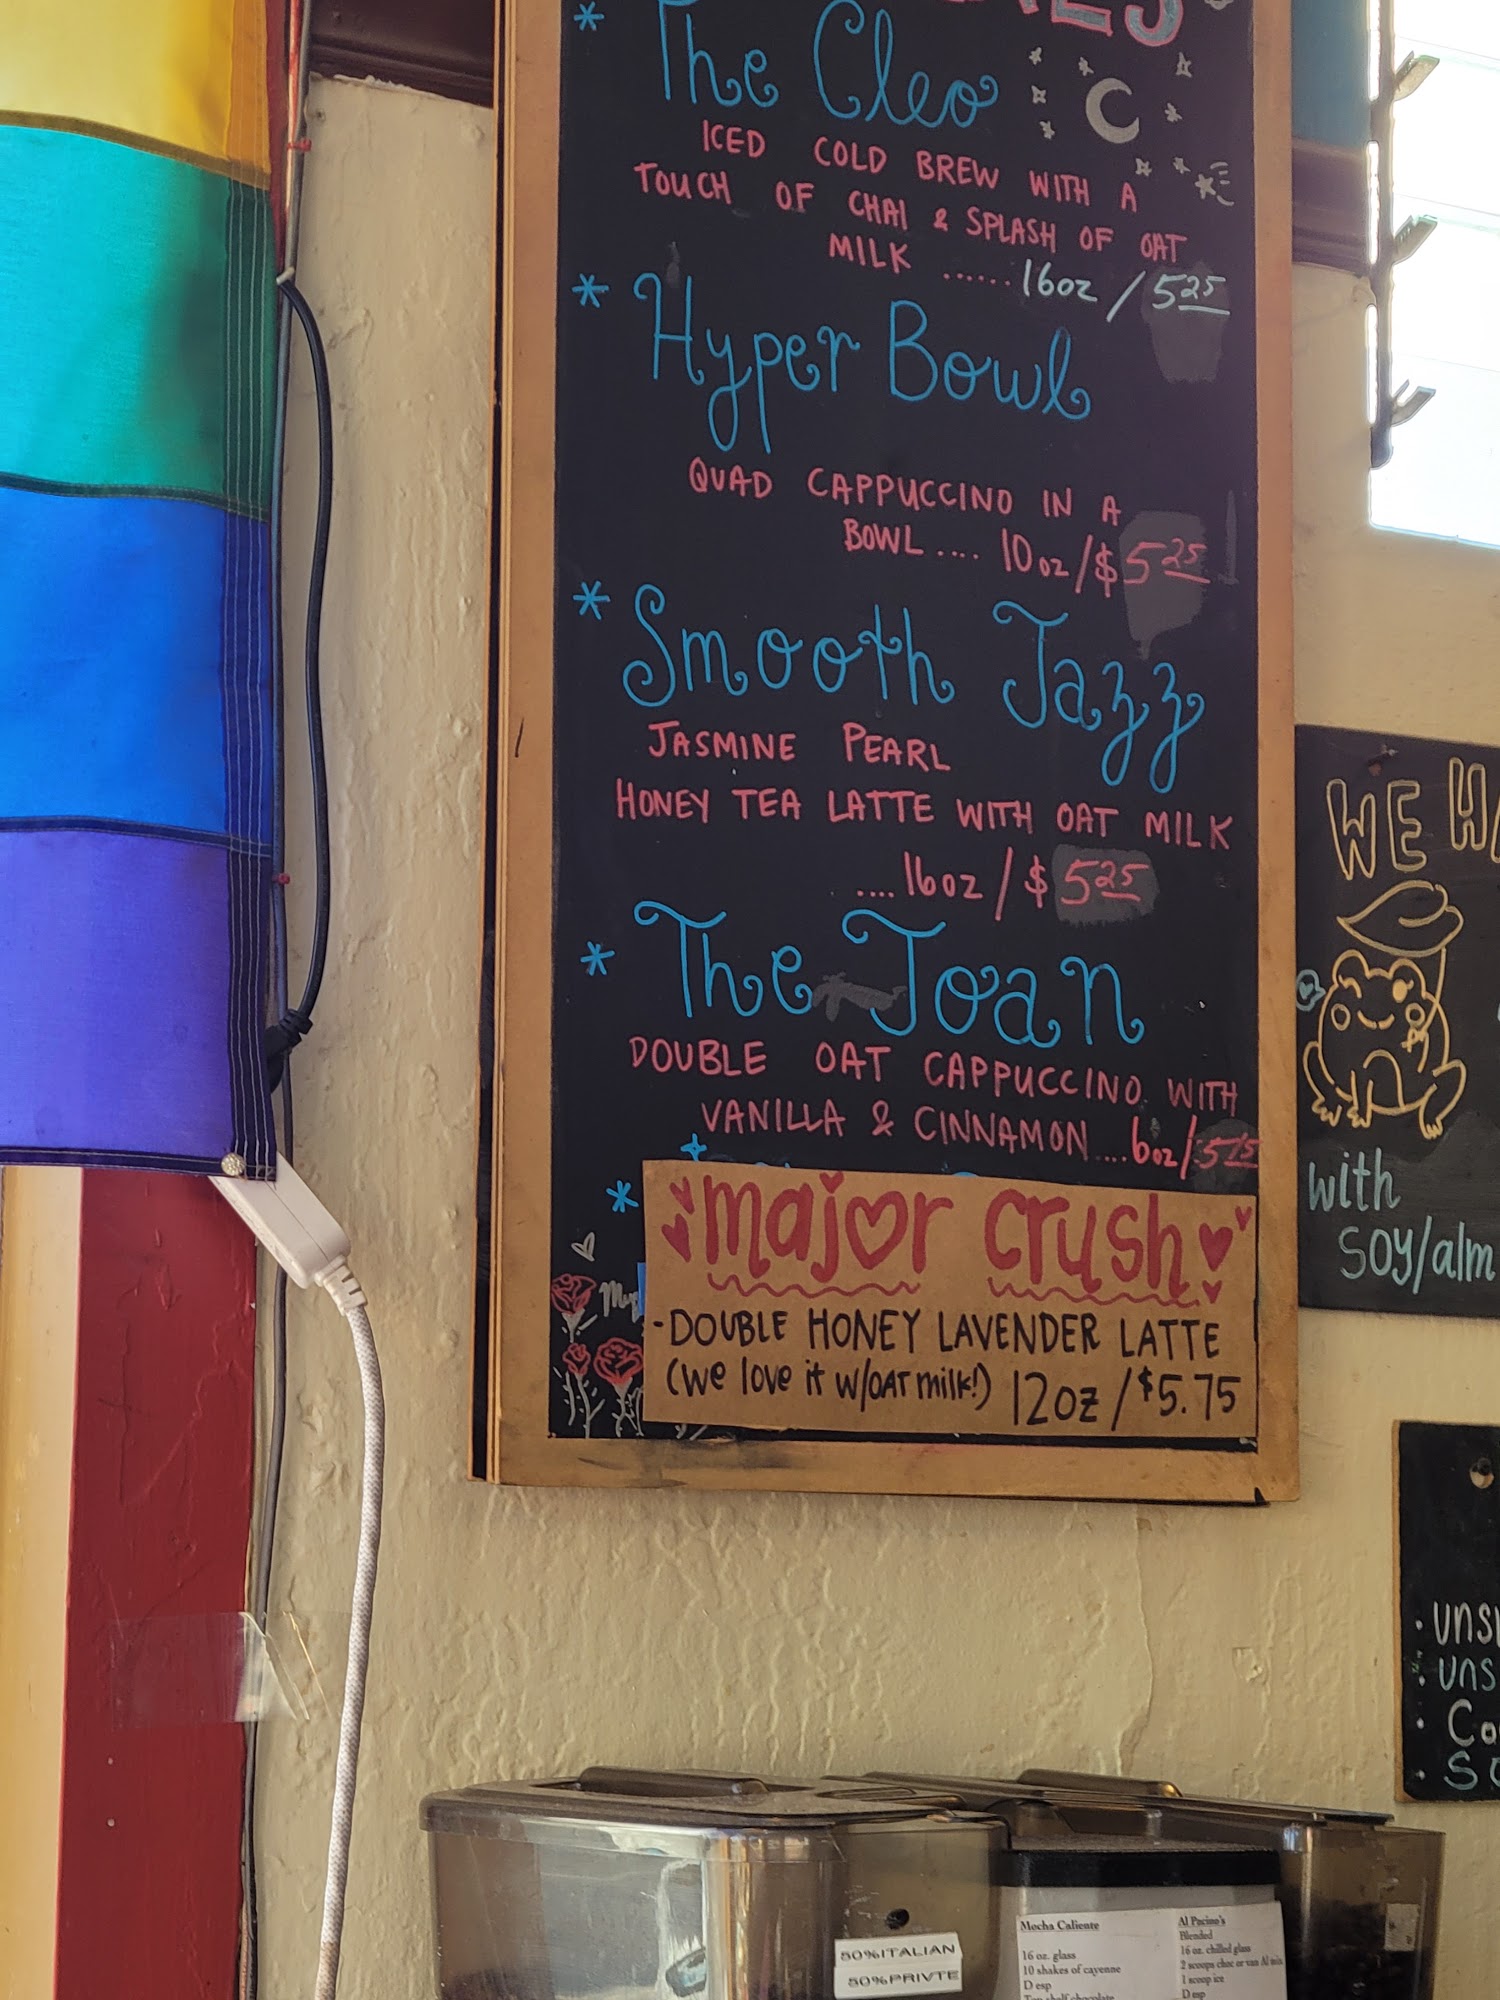 * The Cleo
ICED COLD BREW WITH A
TOUCH OF CHAI & SPLASH OF OAT
MILK ...... 16oz / 5 25
* Hyper Bowl
QUAD CAPPUCCINO IN A
BOWL .... 10oz/$ 5 25
* Smooth Jazz
JASMINE PEARL
HONEY TEA LATTE WITH OAT MILK
.... 16oz / $ 5 25
* The Joan
DOUBLE OAT CAPPUCCINO WITH
VANILLA & CINNAMON .... 6oz/ 5 75
*
major crush
-DOUBLE HONEY LAVENDER LATTE
(we love it w/OAT milk!) 12oz / $5.75
WE HA
with
SOY/alm
· unsw
· uns
· Co
· So
50%ITALIAN
50%PRIVTE
Mocha Caliente
16 oz. glass
10 shakes of cayenne
D esp
Al Pacino's
Blended
16 oz. chilled glass
2 scoops choc or van Al mix
1 scoop ice
D esp